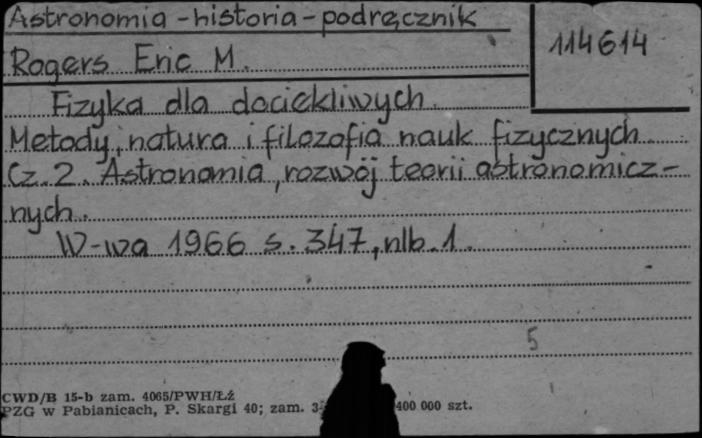 Astronomia - historia - podręcznik
114614
Rogers Eric M.
Fizyka dla dociekliwych.
Metody, natura i filozofia nauk fizycznych
Cz. 2. Astronomia, rozwój teorii astronomicz-
nych.
W-wa 1966 s. 347, nlb. 1.
5
CWD/B 15-b zam. 4065/PWH/Łź
PZG w Pabianicach, P. Skargi 40; zam. 400 000 szt.